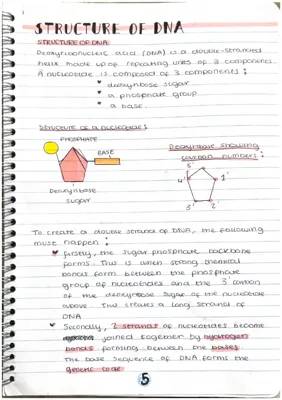 STRUCTURE OF DNA
STRUCTURE OF DNA
Deoxyribonucleic acid (DNA) is a double-stranded
helix made up of repeating units of 3 components.
A nucleotide is composed of 3 components:
deoxyribose sugar
a phosphate group
a base.
STRUCTURE OF A NUCLEOTIDE:
PHOSPHATE
BASE
Deoxyribose
sugar
Deoxyribose showing
carbon numbers:
5'
4'
1'
3'
2
To create a double strands of DNA, the following
must happen:
firstly, the sugar phosphate backbone
forms. This is when strong chemical
bonds form between the phosphate
group of nucleotides and the 3' carbon
of the deoxyribose sugar of the nucleotide
above. This creates a long strands of
DNA
Secondly, 2 strands of nucleotides become
joined together by hydrogen
bonds forming between the bases.
The base sequence of DNA forms the
genetic code
5